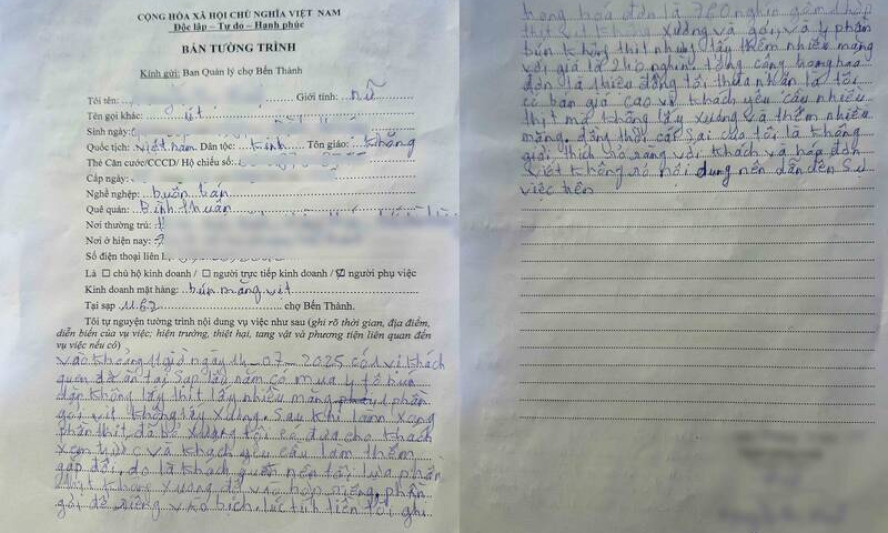 CỘNG HÒA XÃ HỘI CHỦ NGHĨA VIỆT NAM
Độc lập – Tự do – Hạnh phúc
BẢN TƯỜNG TRÌNH
Kính gửi: Ban Quản lý chợ Bến Thành
Tôi tên: Giới tính: nữ
Tên gọi khác: út
Sinh ngày:
Quốc tịch: việt nam Dân tộc: kinh Tôn giáo: không
Thẻ Căn cước/CCCD/ Hộ chiếu số:
Cấp ngày:
Nghề nghiệp: buôn bán
Quê quán: Bình thuận
Nơi thường trú:
Nơi ở hiện nay:
Số điện thoại liên
Là ☐ chủ hộ kinh doanh / ☐ người trực tiếp kinh doanh / ☑ người phụ việc
Kinh doanh mặt hàng: bún măng vịt
Tại sạp chợ Bến Thành.
Tôi tự nguyện tường trình nội dung vụ việc như sau (ghi rõ thời gian, địa điểm,
diễn biến của vụ việc; hiện trường, thiệt hại, tang vật và phương tiện liên quan đến
vụ việc nếu có)
vào khoảng 11 giờ ngày 14-07-2025 có 1 vị khách
quen đã ăn tại Sạp lâu năm có mua 4 tô bún
dặn không lấy thịt lấy nhiều măng 1 phần
gỏi vịt không lấy xương. Sau khi làm xong
phần thịt đã bỏ xương tôi có đưa cho khách
xem trước và khách yêu cầu làm thêm
gấp đôi, do là khách quen nên tôi lựa phần
thịt không xương để vào hộp riêng, phần
gỏi để riêng vào bịch. lúc tính tiền tôi ghi
trong hóa đơn là 760 nghìn gồm 1 hộp
thịt vịt không xương và gỏi, và 4 phần
bún không thịt nhưng lấy thêm nhiều măng
với giá là 240 nghìn. tổng cộng trong hóa
đơn là 1 triệu đồng tôi thừa nhận là tôi
có bán giá cao vì khách yêu cầu nhiều
thịt mà không lấy xương và thêm nhiều
măng. đồng thời cái sai của tôi là không
giải thích rõ ràng với khách và hóa đơn
viết không rõ nội dung nên dẫn đến Sự
việc trên